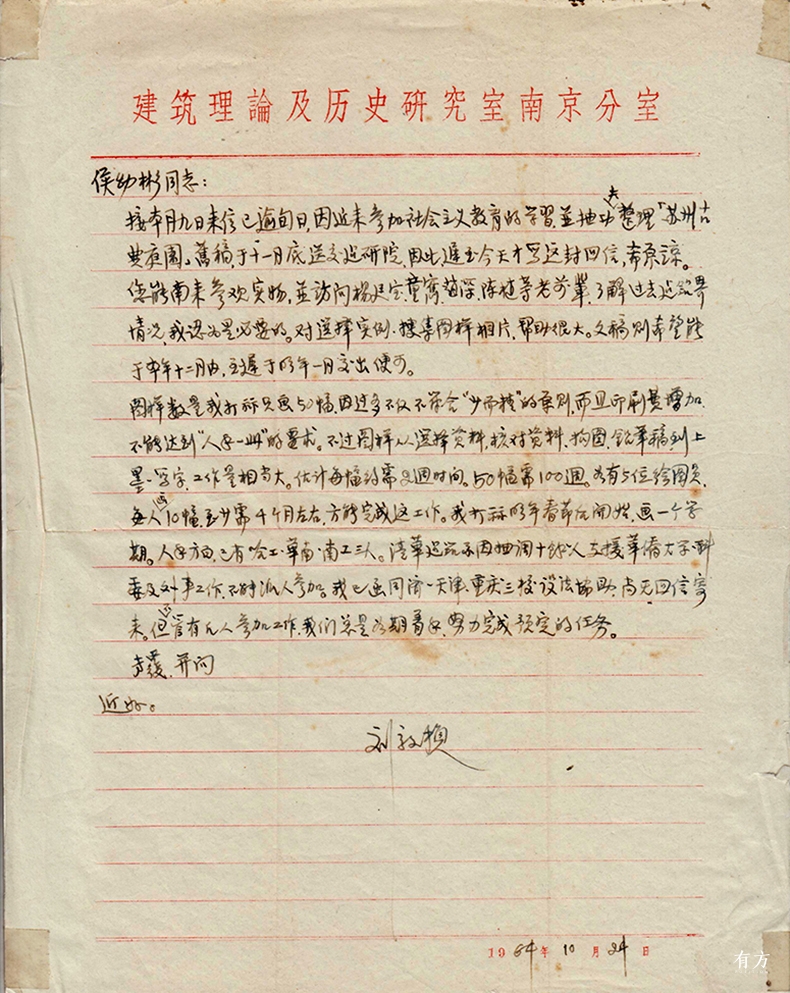 建筑理論及历史研究室南京分室
侯幼彬同志：
接本月九日来信已逾旬日，因近来参加社会主义教育的学習，並抽功夫整理「苏州古
典庭園」舊稿，于十一月底送交建研院，因此遲至今天才写这封回信，希原諒。
您能南来参观实物，並访问杨廷宝、童寯、陈植等老前輩，了解过去建築界
情况，我认为是必要的。对选擇实例、搜集图样相片，帮助很大。文稿则希望能
于本年十二月内，至遲于明年一月交出便可。
图样数量我打祘只画50幅，因过多不仅不符合“少而精”的原则，而且印刷費增加，
不能达到“人手一册”的要求。不过图样从选择资料，核对资料，构图，鉛筆稿到上
墨、写字，工作量相当大。估计每幅约需2週时间。50幅需100週。如有5位绘图員，
每人画10幅，至少需4个月左右，方能完成这工作。我打祘明年春节后開始，画一个学
期。人手方面，已有哈工、華南、南工三人。清華建筑系因抽调十余人支援華僑大学
及外事工作，不能派人参加。我已函同济、天津、重庆三校，设法协助，尚无回信寄
来。但不管有几人参加工作，我们总是如期着手，努力完成预定的任务。
专覆，并问
近好。
刘敦楨
1964年10月24日
有方